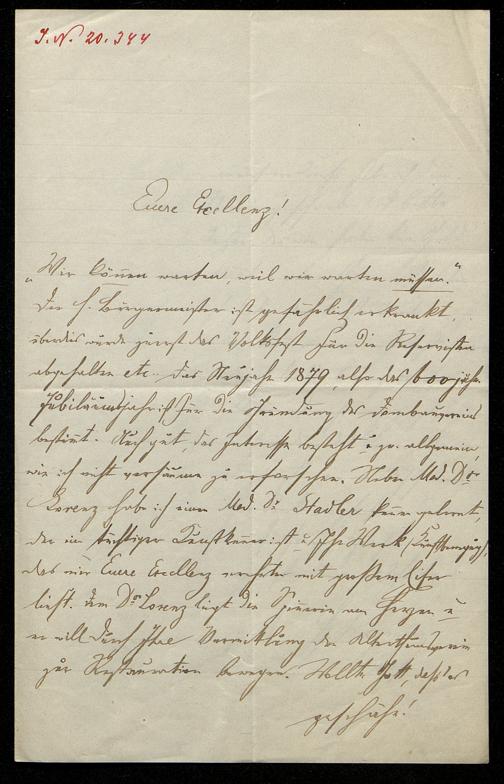 J. N. 20.344
Eure Excellenz!
„Wir können warten, weil wir warten müssen.“
Der H. Bürgermeister ist gefährlich erkrankt,
überdies wurde zuerst das Volksfest für die Reservisten
abgehalten etc. das Neujahr 1879, also das 600jähr.
Jubiläumsjahr ist für die Gründung des Dombauvereins
bestimmt. Auch gut, das Interesse besteht u. zw. allgemein,
wie ich nicht versäume zu erforschen. Neben Med. Dr
Lorenz habe ich einen Med. Dr. Stadler kennen gelernt,
der ein tüchtiger Kunstkenner ist u. Ihr Werk
das mir Eure Excellenz mit großem Eifer
liest. Dem Dr Lorenz liegt die Spinerin am Herzen u
er will durch Ihre Vermittlung den Alterthumsverein
zur Restauration bewegen. Wollte Gott, daß es
geschähe!